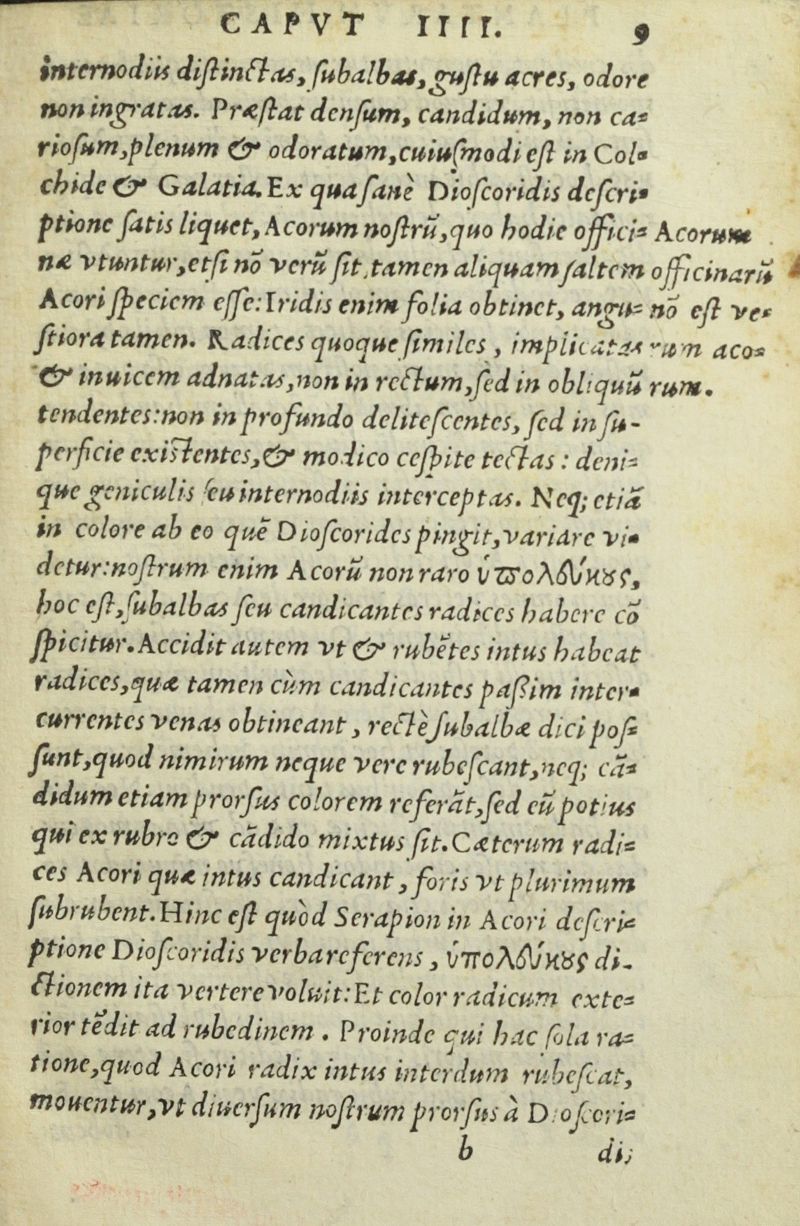 CAPVT IIII. 9
internodiis distinctas, subalbas, gustu acres, odore
non ingratas. Præstat densum, candidum, non ca-
riosum, plenum & odoratum, cuiusmodi est in Col-
chide & Galatia. Ex qua sanè Dioscoridis descri-
ptione satis liquet, Acorum nostrũ, quo hodie offici-
næ vtuntur, etsi nõ verũ sit, tamen aliquam saltem
Acori speciem esse: Iridis enim folia obtinet, angu-
stiora tamen. Radices quoque similes, implicatas
& inuicem adnatas, non in rectum, sed in obliquũ
tendentes: non in profundo delitescentes, sed in su-
perficie existentes, & modico cespite tectas: deni-
que geniculis seu internodiis interceptas. Neq; etiã
in colore ab eo quẽ Dioscorides pingit, variare vi-
detur: nostrum enim Acorũ non raro ὑπολεύκους,
hoc est, subalbas seu candicantes radices habere cõ
spicitur. Accidit autem vt & rubẽtes intus habeat
radices, quæ tamen cùm candicantes passim inter-
currentes venas obtineant, rectè subalbæ dici pos-
sunt, quod nimirum neque vere rubescant, neq; cã-
didum etiam prorsus colorem referãt, sed eũ potius
qui ex rubro & cãdido mixtus sit. Cæterum radi-
ces Acori quæ intus candicant, foris vt plurimum
subrubent. Hinc est quòd Serapion in Acori descri-
ptione Dioscoridis verba referens, ὑπολεύκους di-
ctionem ita vertere voluit: Et color radicum exte-
rior tẽdit ad rubedinem. Proinde qui hac sola ra-
tione, quod Acori radix intus interdum rubescat,
mouentur, vt diuersum nostrum prorsus à Dioscori-
b dis
Acorum
officinarũ
nõ est ve-
rum aco-
rum.